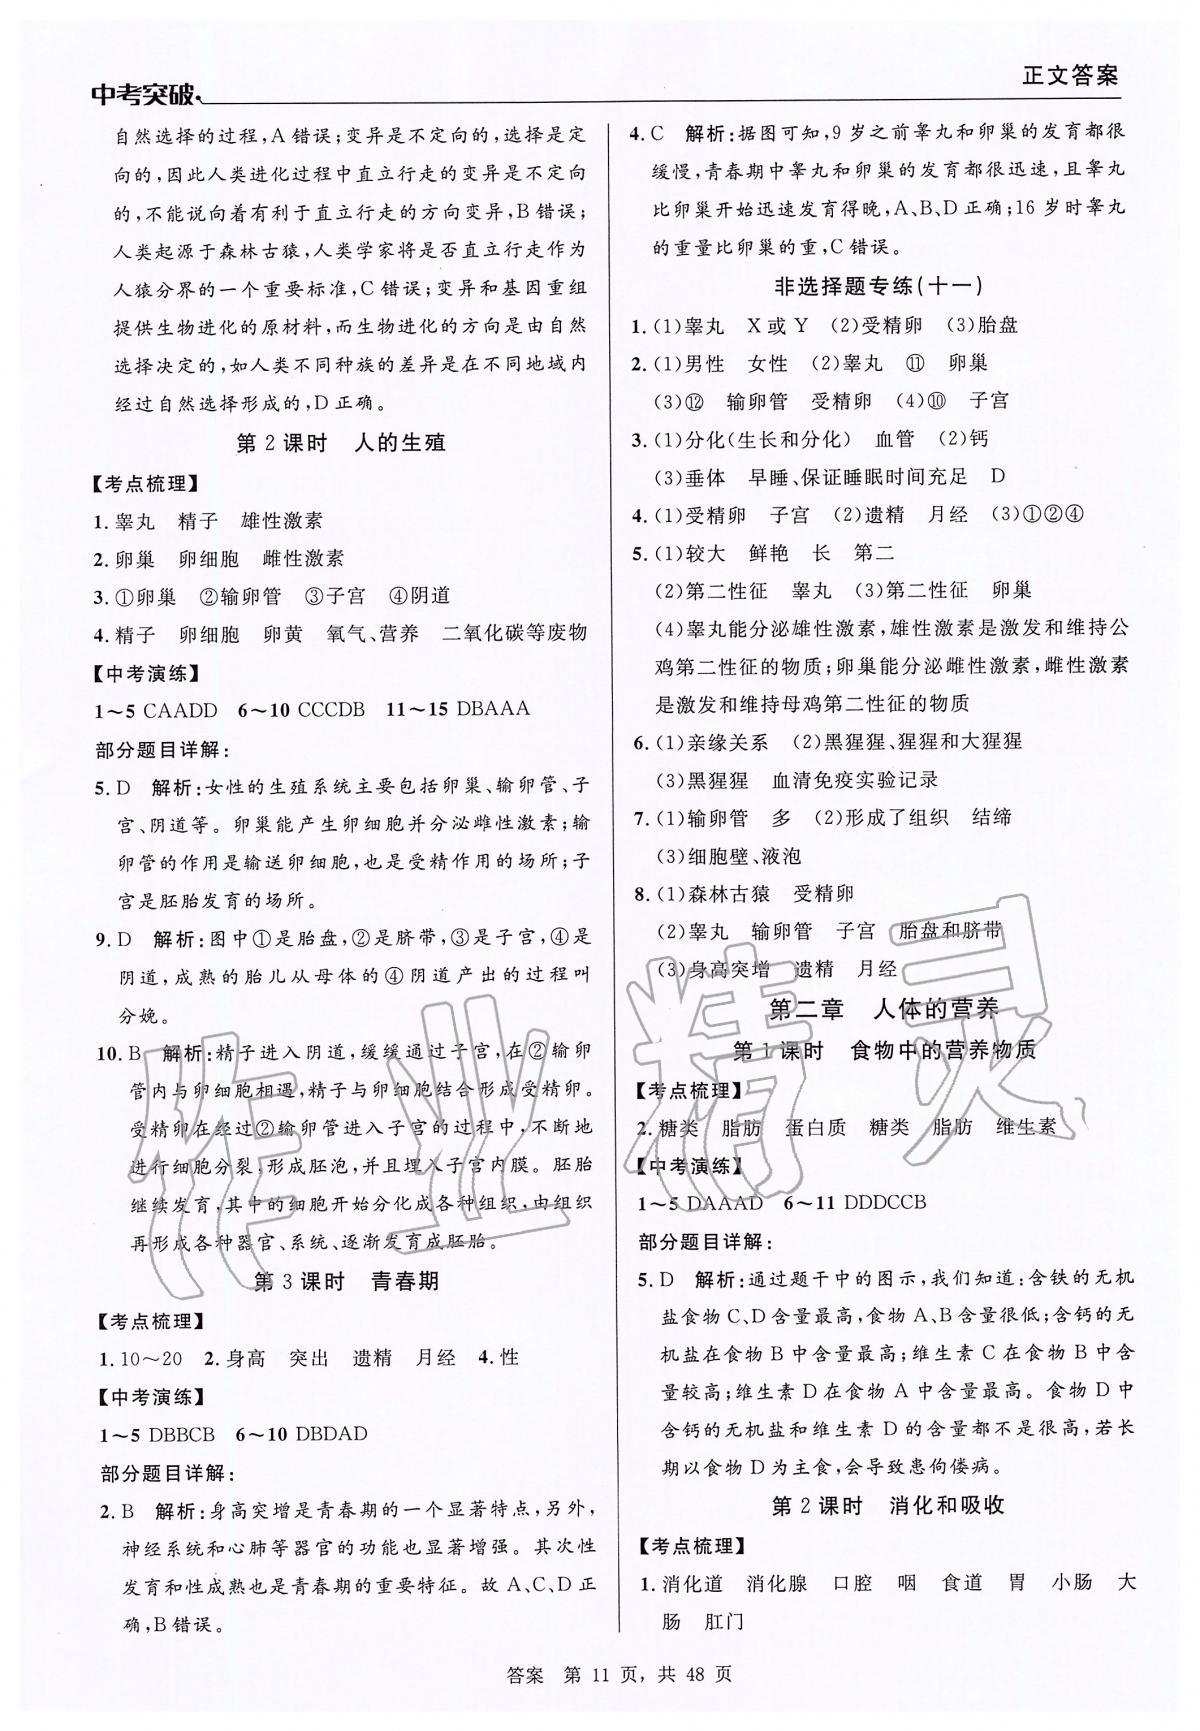 中考突破
正文答案
自然选择的过程,A 错误;变异是不定向的,选择是定
向的,因此人类进化过程中直立行走的变异是不定向
的,不能说向着有利于直立行走的方向变异,B 错误;
人类起源于森林古猿,人类学家将是否直立行走作为
人猿分界的一个重要标准,C 错误;变异和基因重组
提供生物进化的原材料,而生物进化的方向是由自然
选择决定的,如人类不同种族的差异是在不同地域内
经过自然选择形成的,D 正确。
第 2 课时 人的生殖
【考点梳理】
1. 睾丸 精子 雄性激素
2. 卵巢 卵细胞 雌性激素
3. ①卵巢 ②输卵管 ③子宫 ④阴道
4. 精子 卵细胞 卵黄 氧气、营养 二氧化碳等废物
【中考演练】
1～5 CAADD 6～10 CCCDB 11～15 DBAAA
部分题目详解:
5. D 解析:女性的生殖系统主要包括卵巢、输卵管、子
宫、阴道等。卵巢能产生卵细胞并分泌雌性激素;输
卵管的作用是输送卵细胞,也是受精作用的场所;子
宫是胚胎发育的场所。
9. D 解析:图中①是胎盘,②是脐带,③是子宫,④是
阴道,成熟的胎儿从母体的④阴道产出的过程叫
分娩。
10. B 解析:精子进入阴道,缓缓通过子宫,在②输卵
管内与卵细胞相遇,精子与卵细胞结合形成受精卵。
受精卵在经过②输卵管进入子宫的过程中,不断地
进行细胞分裂,形成胚泡,并且埋入子宫内膜。胚胎
继续发育,其中的细胞开始分化成各种组织,由组织
再形成各种器官、系统、逐渐发育成胚胎。
第 3 课时 青春期
【考点梳理】
1. 10～20 2. 身高 突出 遗精 月经 4. 性
【中考演练】
1～5 DBBCB 6～10 DBDAD
部分题目详解:
2. B 解析:身高突增是青春期的一个显著特点,另外,
神经系统和心肺等器官的功能也显著增强。其次性
发育和性成熟也是青春期的重要特征。故 A、C、D 正
确,B 错误。
4. C 解析:据图可知,9 岁之前睾丸和卵巢的发育都很
缓慢,青春期中睾丸和卵巢的发育都很迅速,且睾丸
比卵巢开始迅速发育得晚,A、B、D 正确;16 岁时睾丸
的重量比卵巢的重,C 错误。
非选择题专练(十一)
1. (1)睾丸 X 或 Y (2)受精卵 (3)胎盘
2. (1)男性 女性 (2)睾丸 ⑪ 卵巢
(3)⑫ 输卵管 受精卵 (4)⑩ 子宫
3. (1)分化(生长和分化) 血管 (2)钙
(3)垂体 早睡、保证睡眠时间充足 D
4. (1)受精卵 子宫 (2)遗精 月经 (3)①②④
5. (1)较大 鲜艳 长 第二
(2)第二性征 睾丸 (3)第二性征 卵巢
(4)睾丸能分泌雄性激素,雄性激素是激发和维持公
鸡第二性征的物质;卵巢能分泌雌性激素,雌性激素
是激发和维持母鸡第二性征的物质
6. (1)亲缘关系 (2)黑猩猩、猩猩和大猩猩
(3)黑猩猩 血清免疫实验记录
7. (1)输卵管 多 (2)形成了组织 结缔
(3)细胞壁、液泡
8. (1)森林古猿 受精卵
(2)睾丸 输卵管 子宫 胎盘和脐带
(3)身高突增 遗精 月经
第二章 人体的营养
第 1 课时 食物中的营养物质
【考点梳理】
2. 糖类 脂肪 蛋白质 糖类 脂肪 维生素
【中考演练】
1～5 DAAAD 6～11 DDDCCB
部分题目详解:
5. D 解析:通过题干中的图示,我们知道:含铁的无机
盐食物 C、D 含量最高,食物 A、B 含量很低;含钙的无
机盐在食物 B 中含量最高;维生素 C 在食物 B 中含
含量较高;维生素 D 在食物 A 中含量最高。食物 D 中
含钙的无机盐和维生素 D 的含量都不是很高,若长
期以食物 D 为主食,会导致患佝偻病。
第 2 课时 消化和吸收
【考点梳理】
1. 消化道 消化腺 口腔 咽 食道 胃 小肠 大
肠 肛门
作业精灵
答案 第 11 页,共 48 页